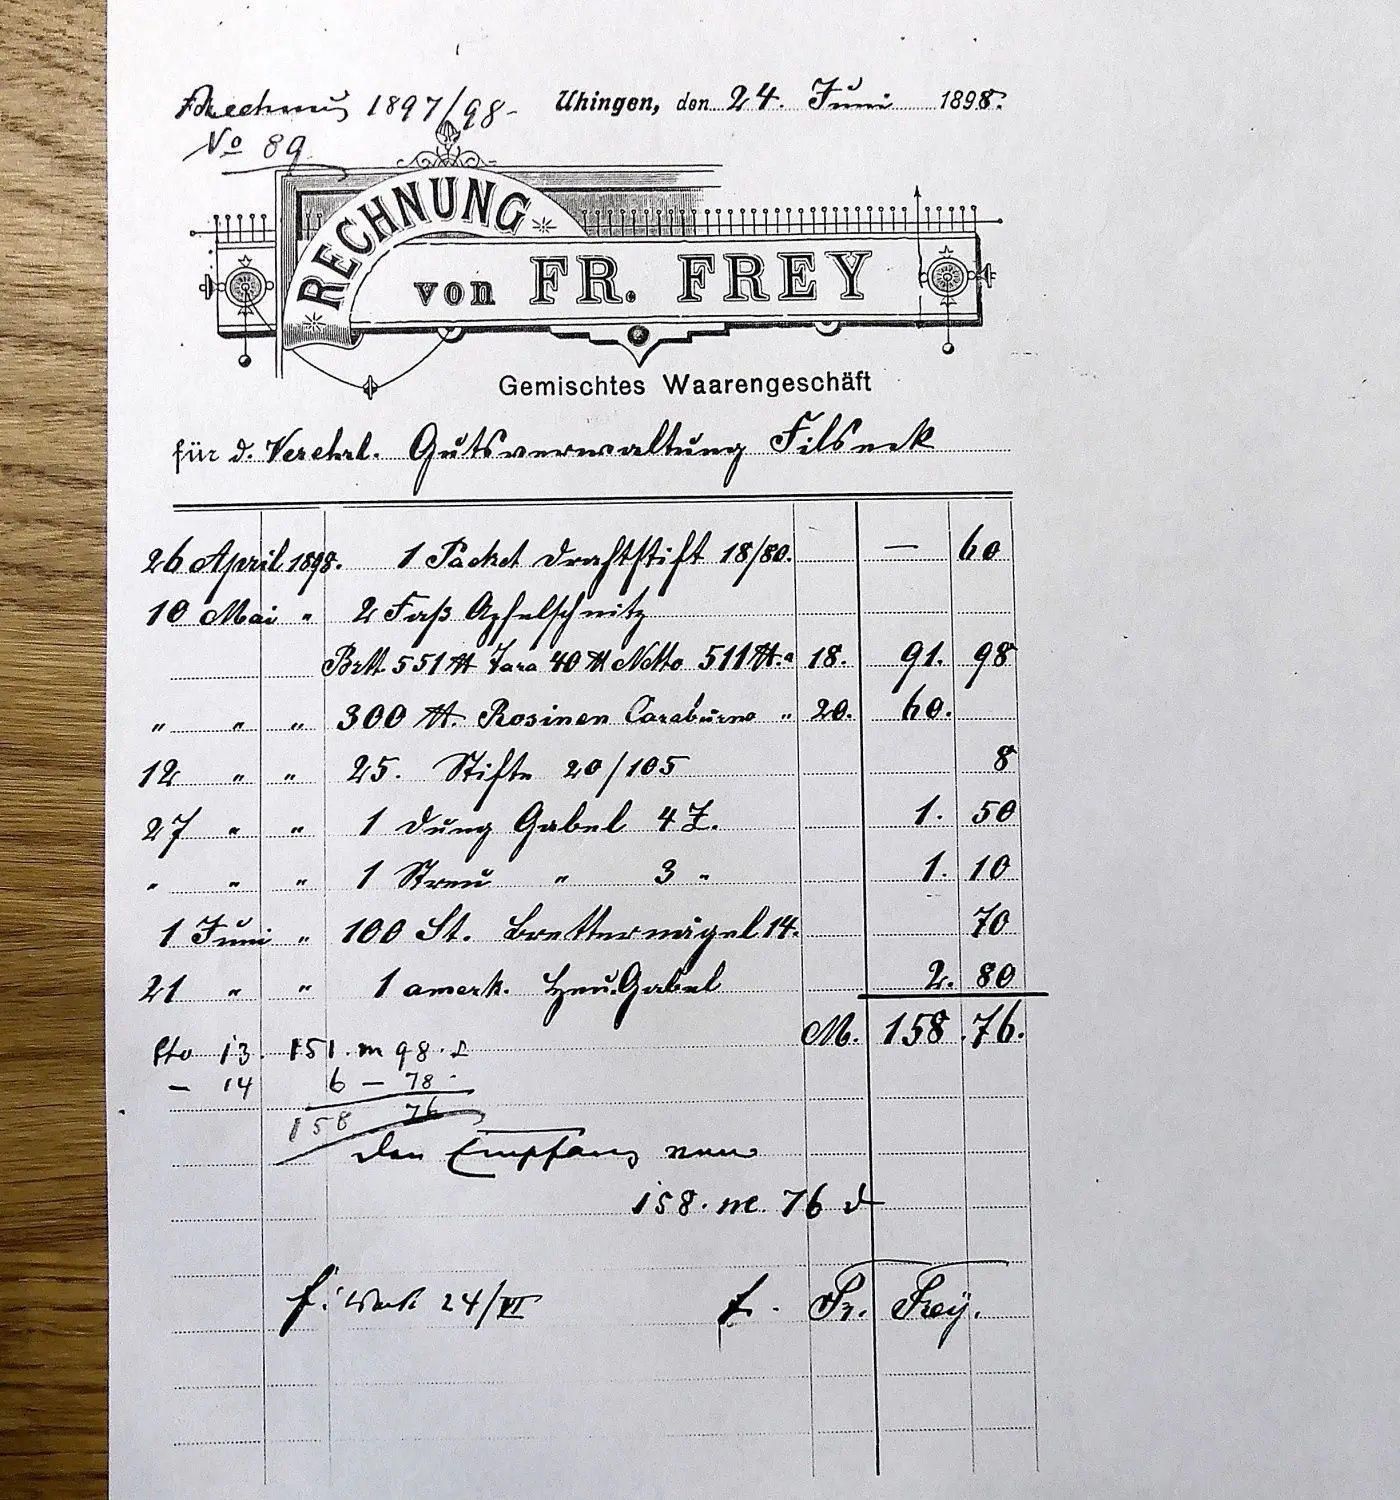 Rechnung 1897/98-
Uhingen, den 24. Juni 1898.
No 89
RECHNUNG
von FR. FREY
Gemischtes Waarengeschäft
für d. Verehrl. Gutsverwaltung Filseck
26 April 1898. 1 Packet Drahtstift 18/80. — 60
10 Mai " 2 Faß Apfelschnitz
Brtt 551 ℔ Tara 40 ℔ Netto 511 ℔. " 18. 91. 98
" " " 300 ℔. Rosinen Caraburno " 20. 60.
12 " " 25. Stifte 20/105 8
27 " " 1 Dung Gabel 4 Z. 1. 50
" " " 1 Streu " 3 " 1. 10
1 Juni " 100 St. Bretternägel 14. 70
21 " " 1 amerk. Heu.Gabel 2. 80
M. 158.76.
Cto 13. 151. m 98. ₰
— 14 6 — 78.
158 76
Den Empfang von
158. M. 76 ₰
24/VI
t. Fr. Frey.